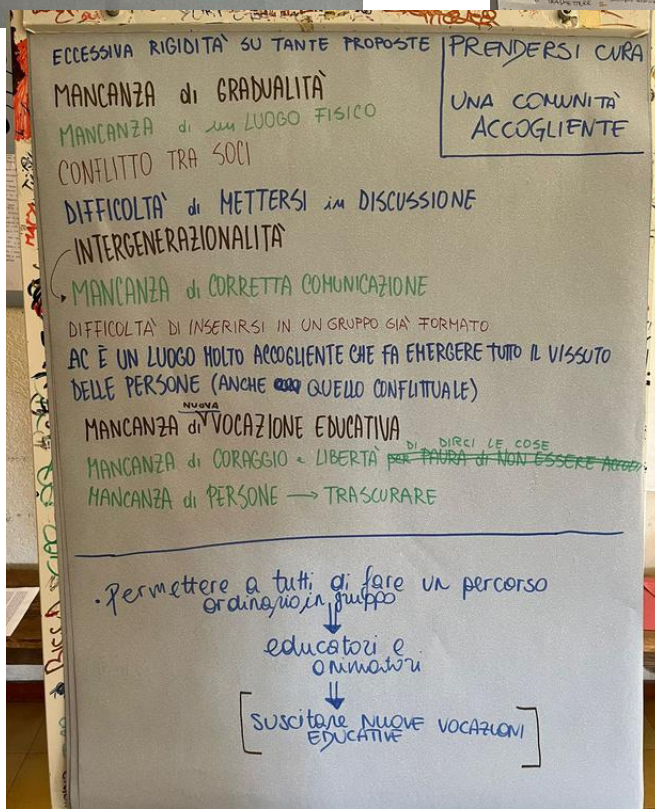 ECCESSIVA RIGIDITÀ SU TANTE PROPOSTE
PRENDERSI CURA
UNA COMUNITÀ
ACCOGLIENTE
MANCANZA di GRADUALITÀ
MANCANZA di un LUOGO FISICO
CONFLITTO TRA SOCI
DIFFICOLTÀ di METTERSI in DISCUSSIONE
INTERGENERAZIONALITÀ
MANCANZA di CORRETTA COMUNICAZIONE
DIFFICOLTÀ DI INSERIRSI IN UN GRUPPO GIÀ FORMATO
AC È UN LUOGO MOLTO ACCOGLIENTE CHE FA EMERGERE TUTTO IL VISSUTO
DELLE PERSONE (ANCHE QUELLO CONFLITTUALE)
MANCANZA di NUOVA VOCAZIONE EDUCATIVA
MANCANZA di CORAGGIO e LIBERTÀ DI DIRCI LE COSE
per PAURA di NON ESSERE
MANCANZA di PERSONE → TRASCURARE
• Permettere a tutti di fare un percorso
ordinario in gruppo
educatori e
animatori
[SUSCITARE NUOVE VOCAZIONI
EDUCATIVE]